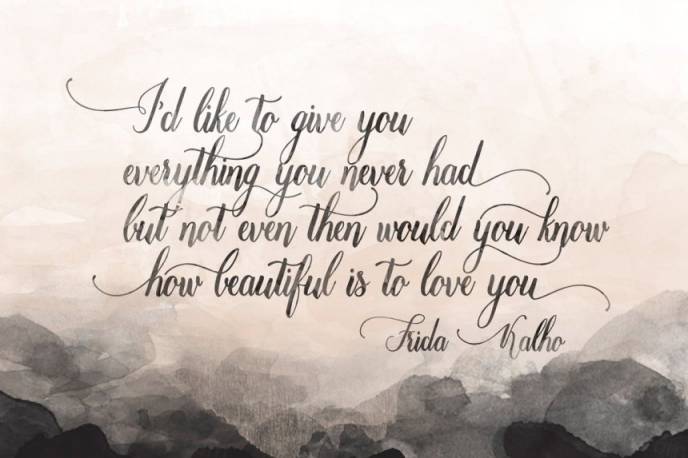 I'd like to give you
everything you never had
but not even then would you know
how beautiful is to love you
Frida Kalho